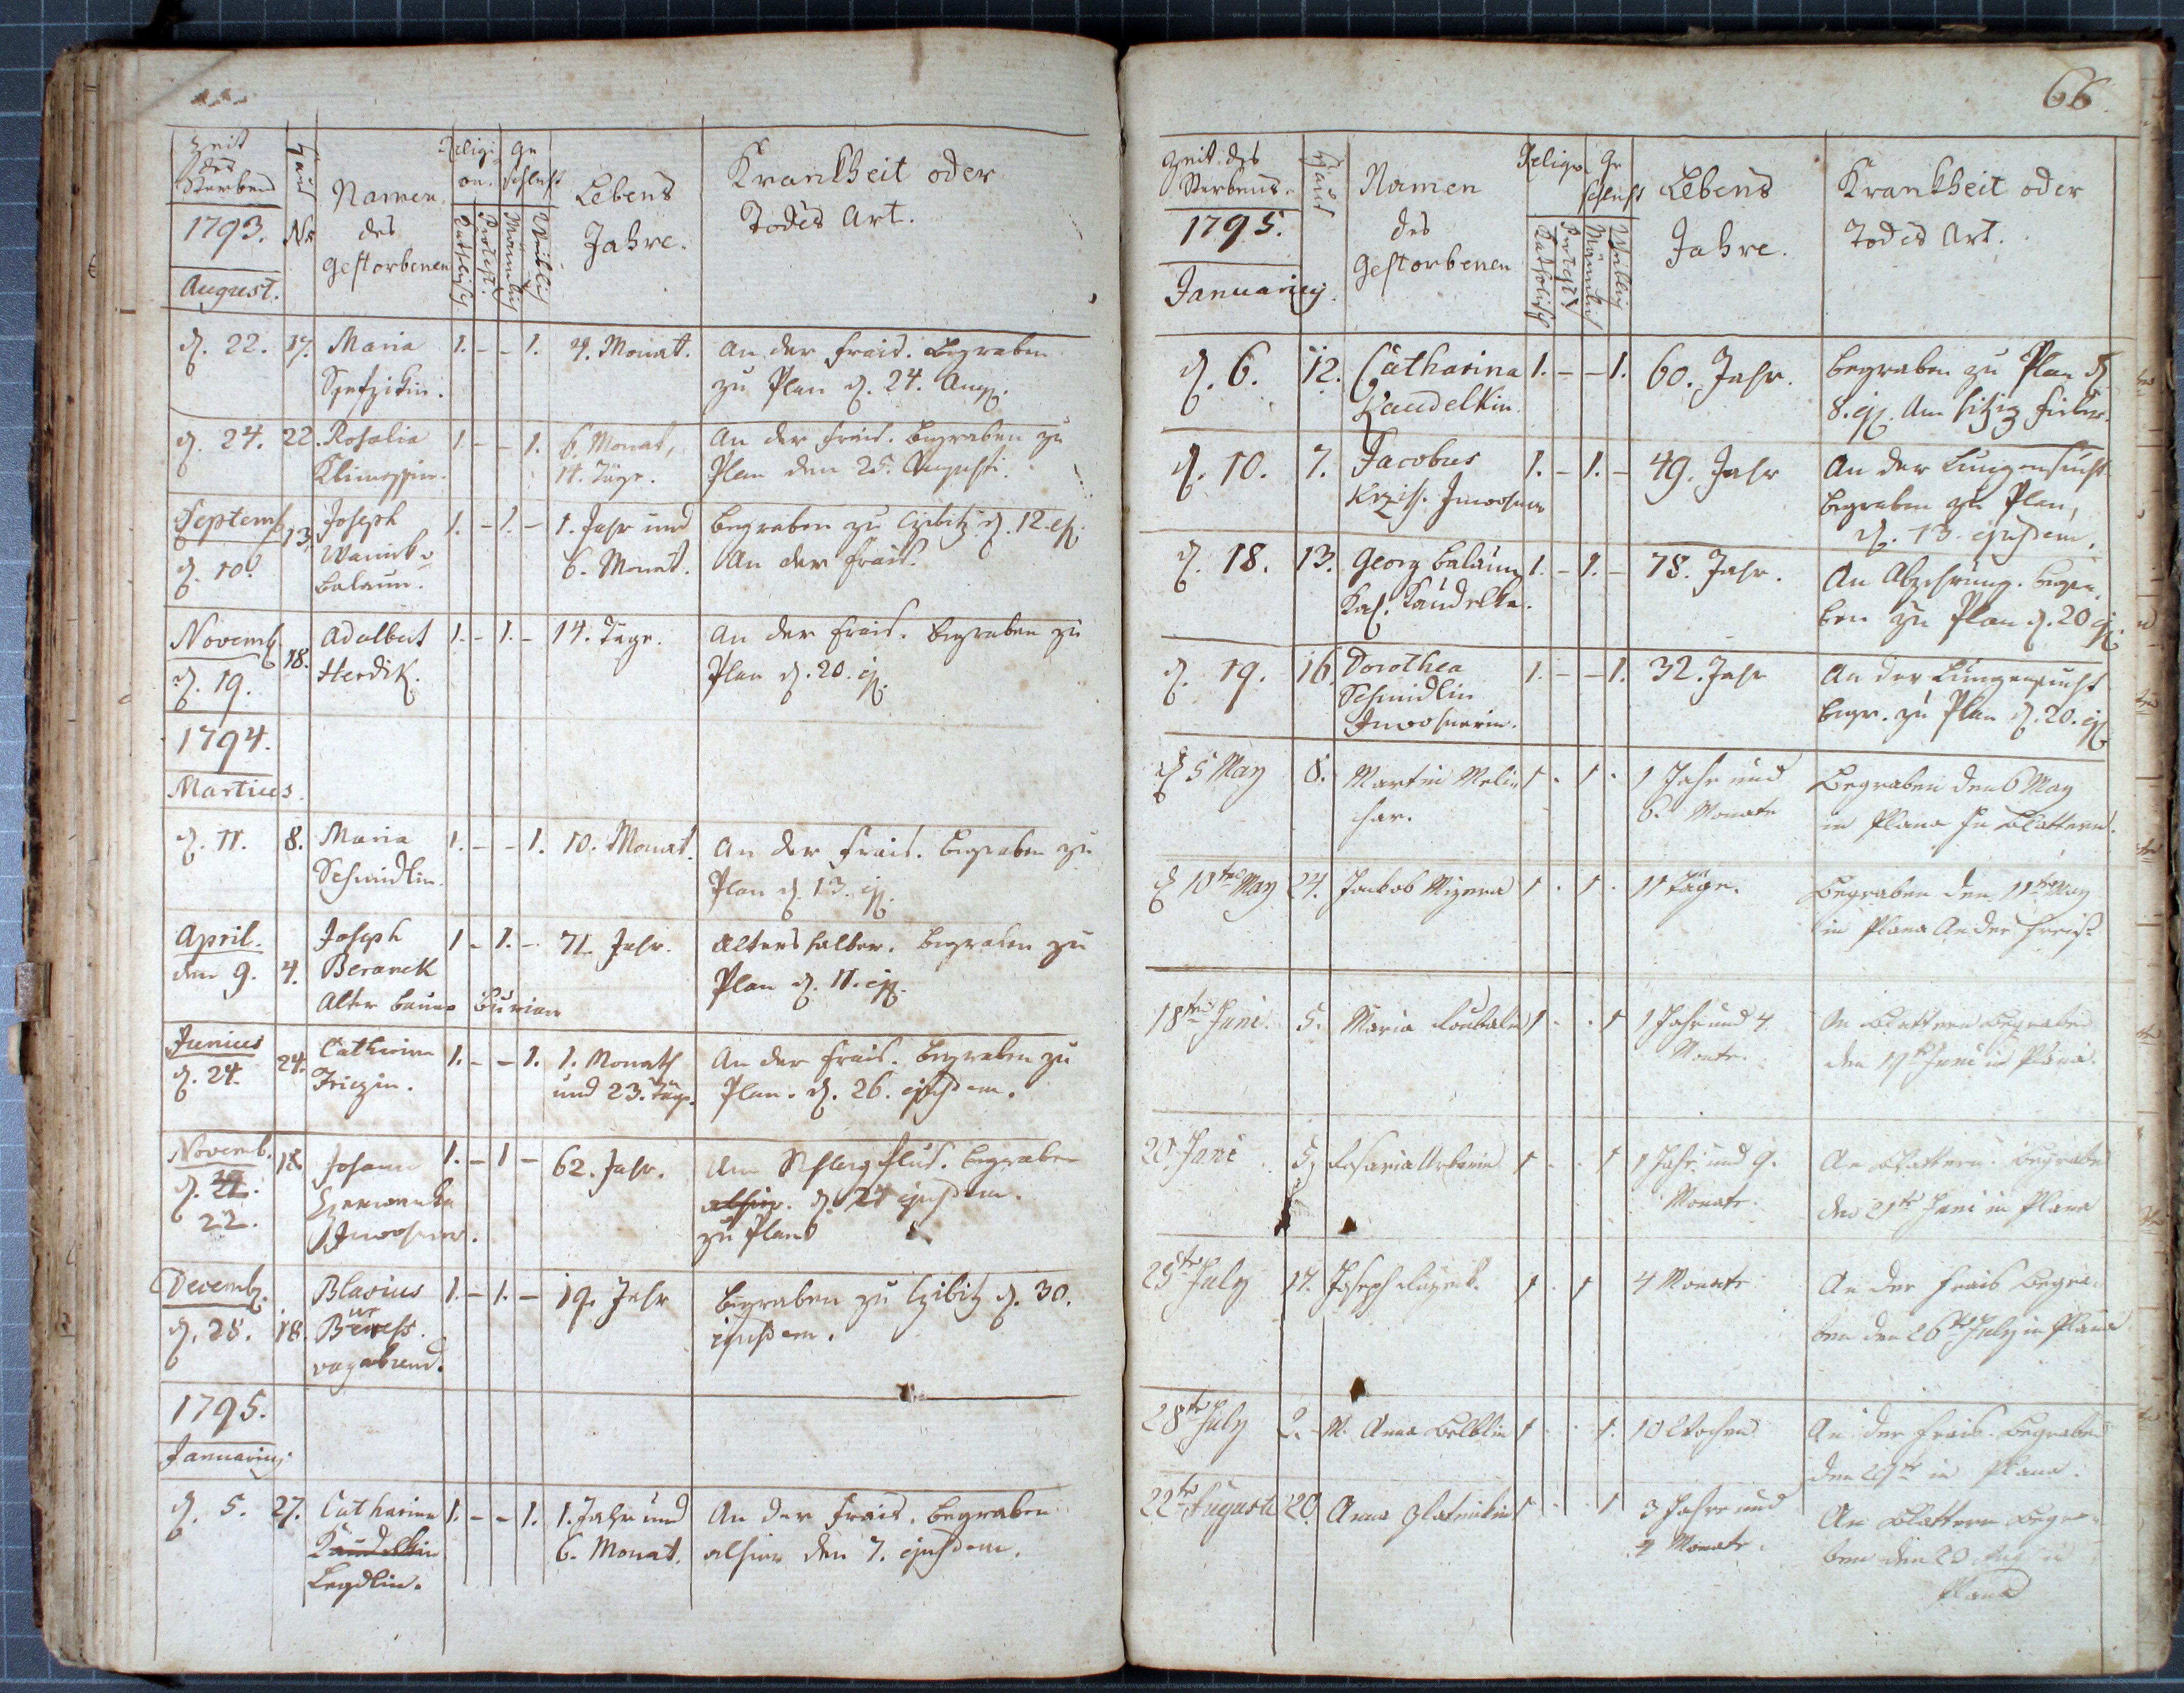 Zeit
des
Sterbens
1793.
August.
Haus
Nr
Namen
des
Gestorbenen
Religi-
on.
Katholisch
Protest.
Ge
schlecht
Männlich
Weiblich
Lebens
Jahre.
Krankheit oder
Todes Art.
d. 22. 17. Maria 1. - - 1. Monat. An der Frais. Begraben
zu Plan d. 24. Aug.
d. 24. 22. Rosalia 1. - - 1. 6. Monat, An der Frais. Begraben zu
14. Täge. Plan den 25. Augusti.
Septemb. 13. Joseph 1. - 1. - 1. Jahr und Begraben zu d. 12. ej.
d. 10. Balaun. 6. Monat. An der Frais.
Novemb. 18. Adalbert 1. - 1. - 14. Täge. An der Frais. Begraben zu
d. 19. Herdik. Plan d. 20. ej.
1794.
Martius.
d. 11. 8. Maria 1. - - 1. 10. Monat. An der Frais. Begraben zu
Schmidlin. Plan d. 13. ej.
April. Joseph 1 - 1. - 71. Jahr. Alters halber. Begraben zu
den 9. 4. Beranek Plan d. 11. ej.
Alter Bauer Burian
Junius 24. Catharina 1. - - 1. 1. Monath An der Frais. Begraben zu
d. 24. und 23. Täge. Plan. d. 26. ejusdem.
Novemb. 18. Johann 1. - 1 - 62. Jahr. Am Schlagflus. Begraben
d. 21. alhier. d. 24 ejusdem.
22. Inwohner. zu Plan
Decemb. Blasius 1. - 1. - 19. Jahr Begraben zu d. 30.
d. 28. 18. vagabund. ejusdem.
1795.
Januarius
d. 5. 27. Catharina 1. - - 1. 1. Jahr und An der Frais. Begraben
Kaudelkin 6. Monat. alhier den 7. ejusdem.
66
Zeit des
Sterbens.
1795.
Januarius.
Haus
Namen
des
Gestorbenen
Religio
Katholisch
Protest
Ge
schlecht
Männlich
Weiblich
Lebens
Jahre.
Krankheit oder
Todes Art.
d. 6. 12. Catharina 1. - - 1. 60. Jahr. Begraben zu Plan d
Kaudelkin. 8. ej. Am hitzig Fieber.
d. 10. 7. Jacobus 1. - 1. - 49. Jahr An der Lungensucht
Inwohner Begraben zu Plan,
d. 13. ejusdem.
d. 18. 13. Georg Balaun 1. - 1. - 78. Jahr. An Abzehrung. Begra-
Kaudelka. ben zu Plan d. 20 ej.
d. 19. 16. Dorothea 1. - - 1. 32. Jahr An der Lungensucht
Schmidlin Begr. zu Plan d. 20. ej
Inwohnerin.
d 5 May 8. Martin Melin 1 . 1 . 1 Jahr und Begraben den 6 May
har. 6. Monate in Plana An Blattern.
d 10ten May 24. Jackob Mizera 1 . 1 . 11 Täge. Begraben den 11ten May
in Plana An der Freis.
18ten Juni. 5. Maria 1 . . 1 1 Jahr und 4 An Blattern Begraben
Monate. den 19ten Juni in Plana.
20 Juni 5 1 . . 1 1 Jahr und 9. An Blattern. Begraben
Monate. den 21ten Juni in Plana
25ten July 17. Joseph 1 . 1 4 Monate An der Frais Begra-
ben den 26ten July in Plana
28ten July 2. M. Anna 1 . . 1. 10 Wochen An der Frais. Begraben
den 29ten in Plana.
22ten Augusti 20. Anna Zlatnikin 1 . . 1 3 Jahre und An Blattern Begra-
4 Monate. ben den 23
Plana